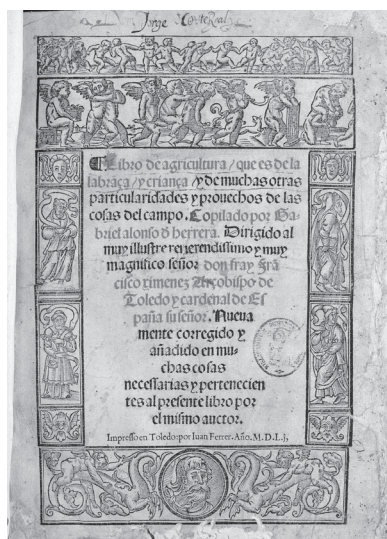 Libro de agricultura / que es de la
labrãça / y criança / y de muchas otras
particularidades y prouechos de las
cosas del campo. Copilado por Ga-
briel alonso d̃ herrera. Dirigido al
muy illustre reuerendissimo y muy
magnifico señor don fray Frã
cisco ximenez Arçobispo de
Toledo y cardenal de Es
paña su señor. Nueua
mente corregido y
añadido en mu-
chas cosas
necessarias y pertenecien
tes al presente libro por
el mismo auctor.
Impresso en Toledo: por Iuan Ferrer. Año. M.D.L.j,